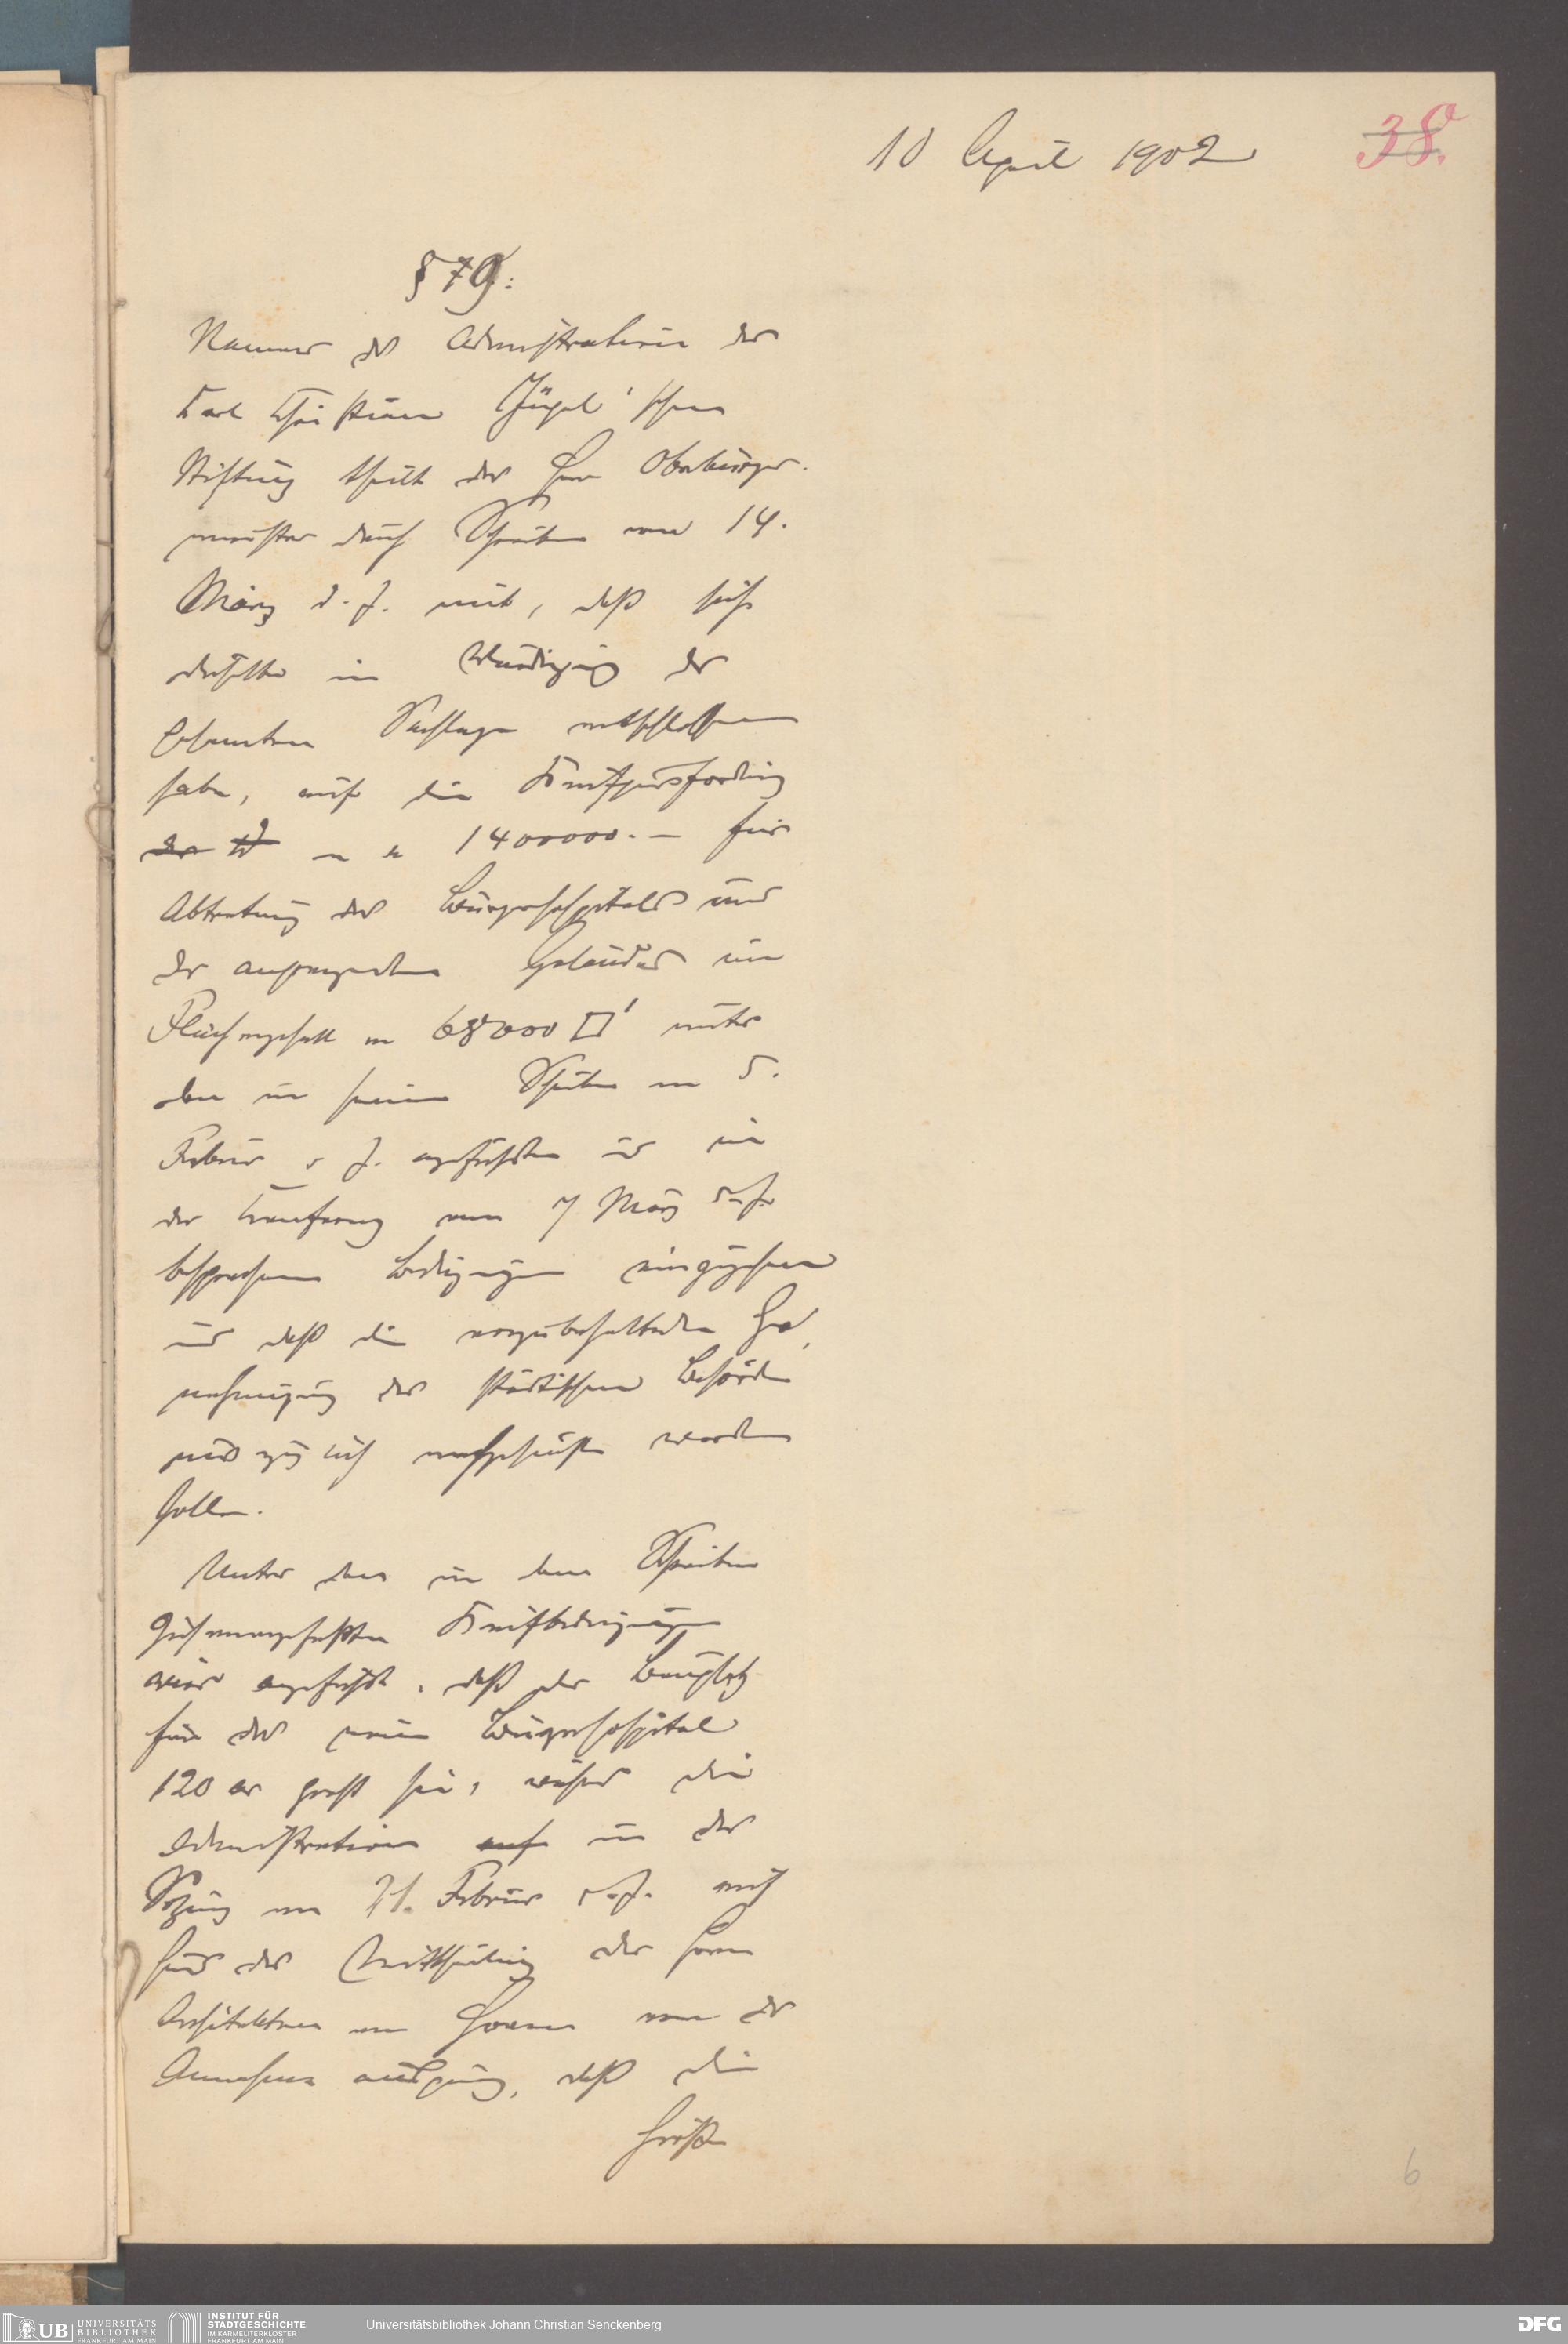 10 April 1902
38.
§ 79.
Namens der Administration der
Karl Christian Jügel'schen
Stiftung theilt der Herr Oberbürger-
meister durch Schreiben vom 14.
März d. J. mit, daß sich
dieselbe in Würdigung der
bekannten Sachlage entschlossen
habe, auf die Kaufpreisforderung
von M 1400000.- für
Abtretung des Bürgerhospitals und
des angrenzenden Geländes im
Flächengehalt von 68000 □' unter
den in seinem Schreiben vom 5.
Februar d J. angeführten und in
der Conferenz vom 7 März d. J.
besprochenen Bedingungen einzugehen
und daß die vorzubehaltende Ge-
nehmigung der städtischen Behörden
nachgesucht werden
solle.
Unter den in dem Schreiben
zusammengefaßten Kaufbedingungen
wird angeführt, daß der Bauplatz
für das neue Bürgerhospital
120 ar groß sei, während die
Administration auf in der
Sitzung vom 21. Februar d. J. auf
Grund der Mittheilung des Herrn
Architekten von Hoven von der
Annahme ausging, daß die
Größe
6
UB UNIVERSITÄTS
BIBLIOTHEK
FRANKFURT AM MAIN
INSTITUT FÜR
STADTGESCHICHTE
IM KARMELITERKLOSTER
FRANKFURT AM MAIN
Universitätsbibliothek Johann Christian Senckenberg
DFG